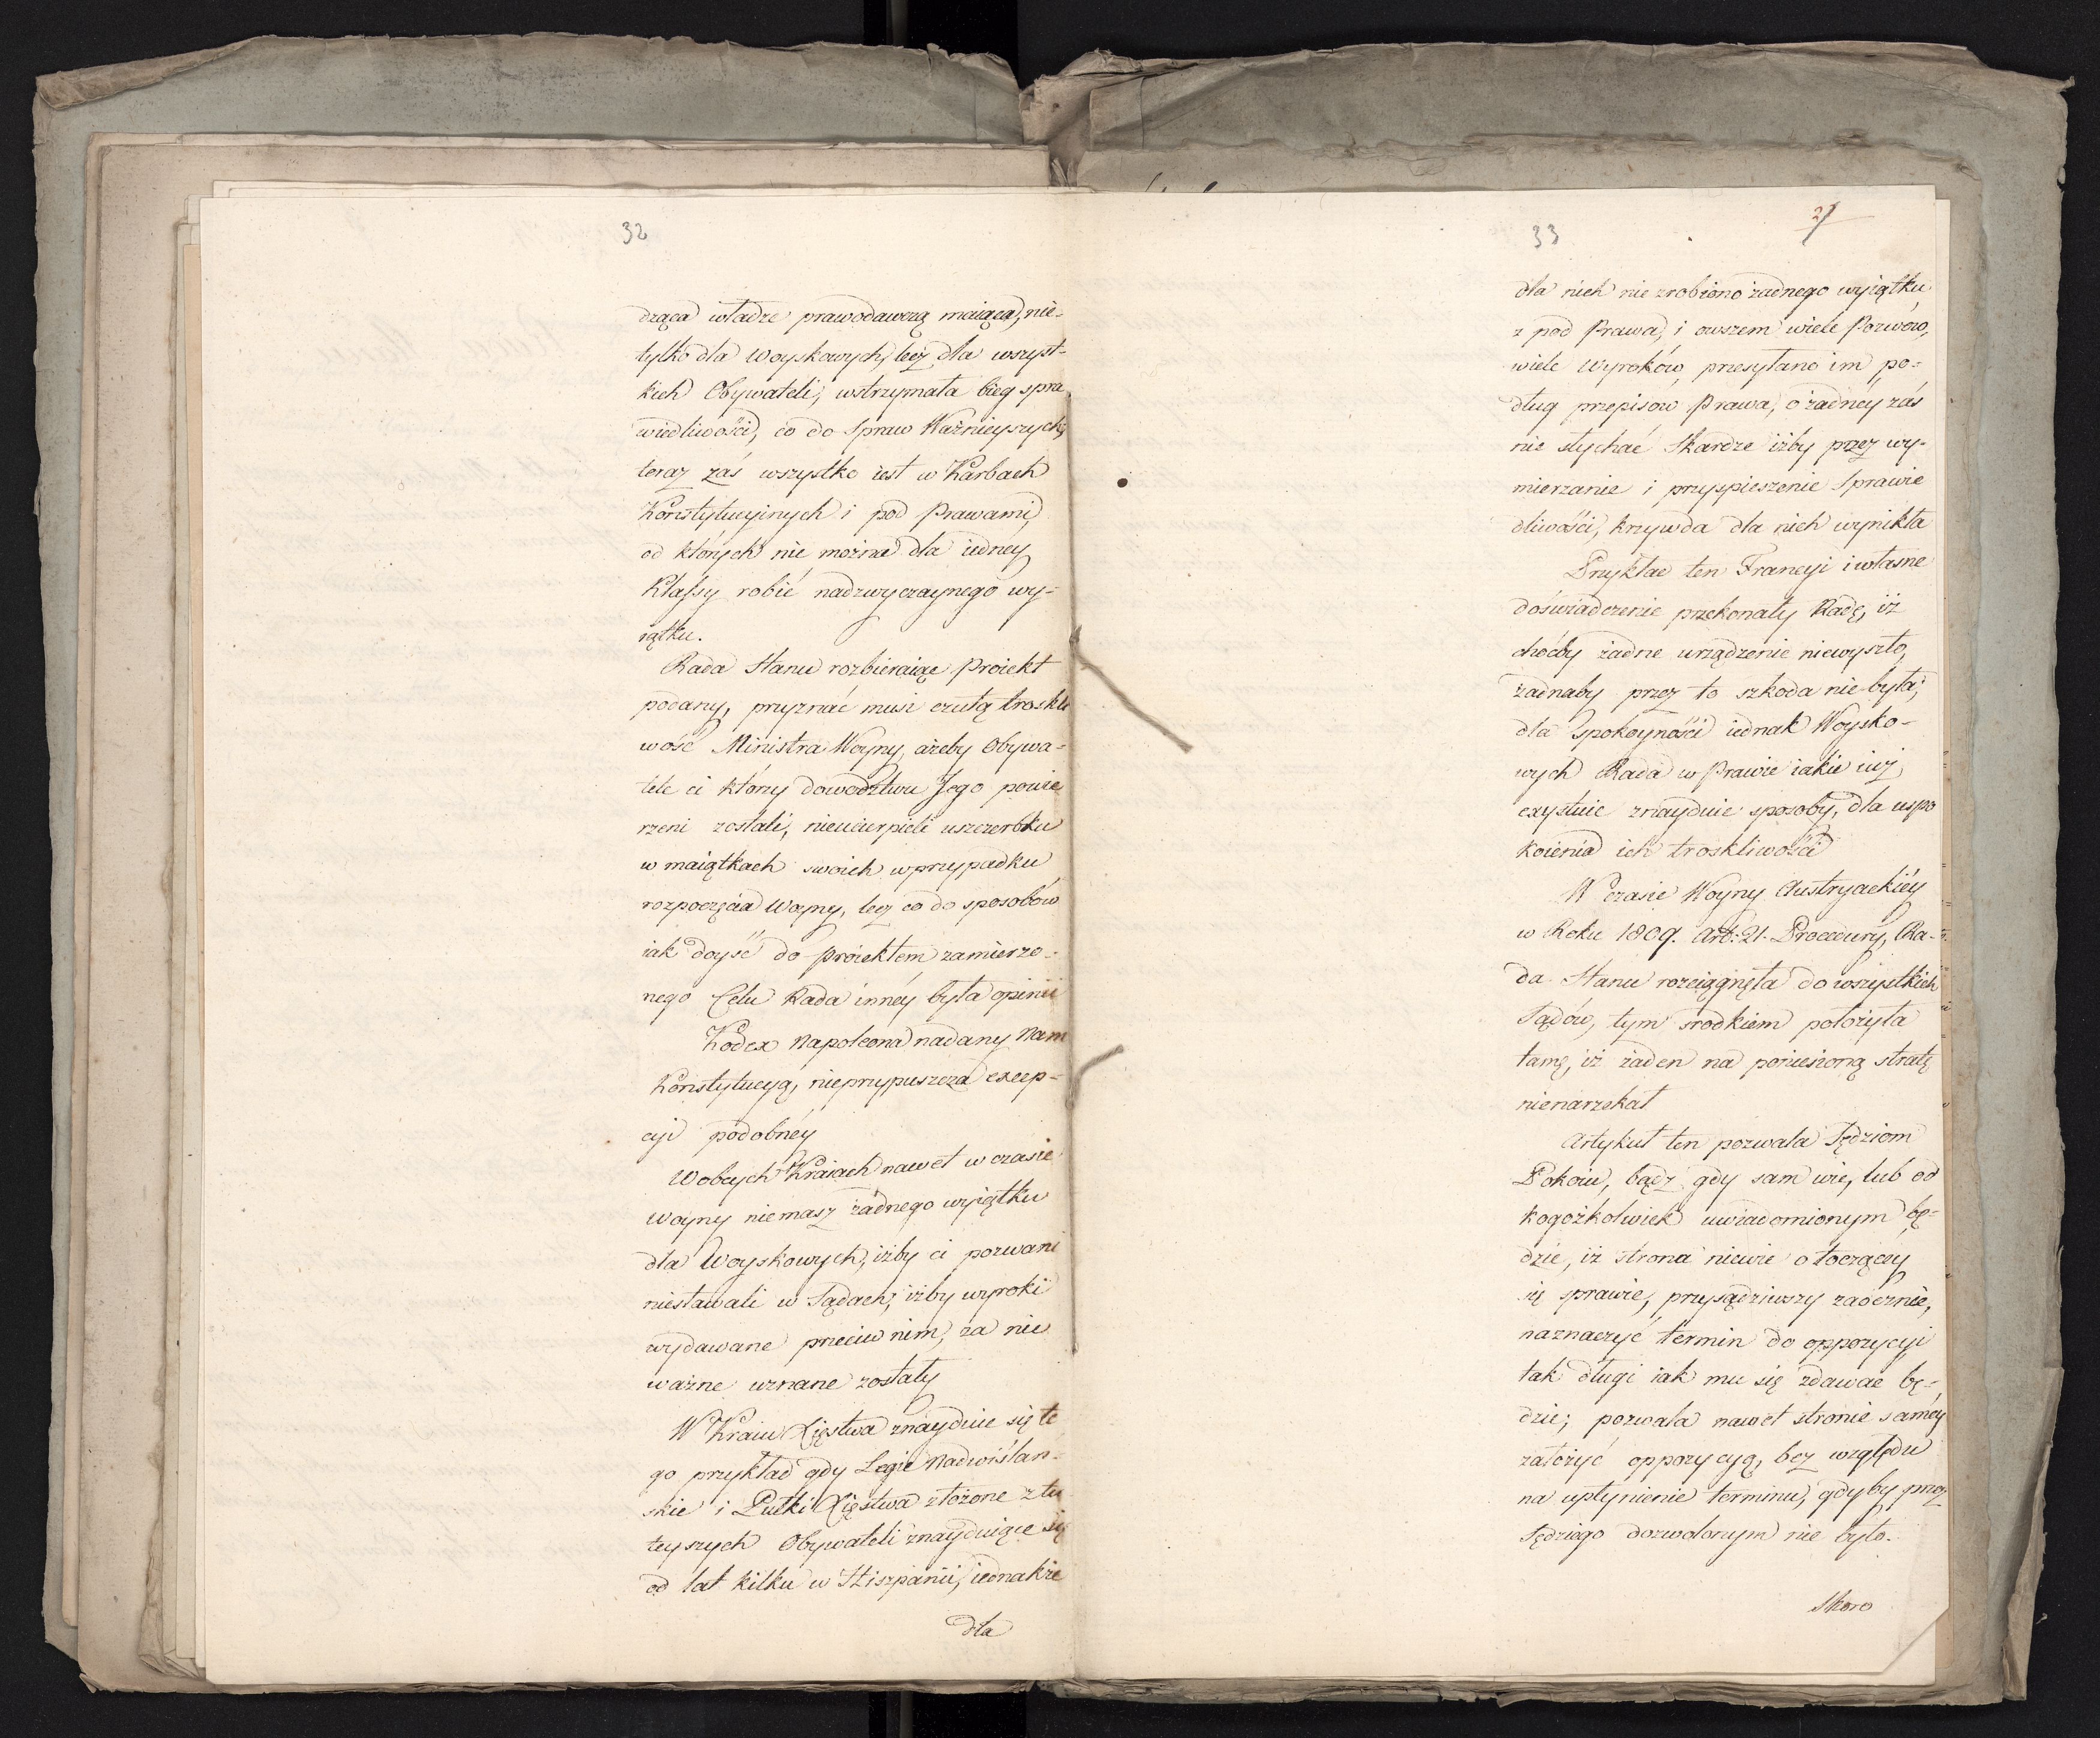 32
dząca władze prawodawczą maiąca, nie-
tylko dla Woyskowych, lecz dla wszyst-
kich Obywateli, wstrzymała bieg spra
wiedliwości, co do Spraw Ważnieyszych;
teraz zaś wszystko iest w Karbach
Konstytucyinych i pod Prawami,
od których nie można dla iedney
Klassy robić nadzwyczaynego wy-
iątku.
Rada Stanu rozbieraiąc Proiekt
podany, przyznać musi czułą troskli
wość Ministra Woyny, ażeby Obywa-
tele ci którzy dowodztwu Jego powie
rzeni zostali, nieucierpieli uszczerbku
w maiątkach swoich w przypadku
rozpoczęcia Woyny, lecz co do sposobów
iak doyść do proiektem zamierzo-
nego Celu Rada inney była opinii
Kodex Napoleona nadany Nam
Konstytucyą, nieprzypuszcza excep-
cyi podobney
W obcych Kraiach nawet w czasie
Woyny niemasz żadnego wyiątku
dla Woyskowych, iżby ci pozwani
niestawali w Sądach; iżby wyroki
wydawane przeciw nim, za nie
ważne uznane zostały
W Kraiu Xięstwa znayduie się te
go przykład gdy Legie Nadwiślan-
skie i Pułki Xięstwa złożone z tu
teyszych Obywateli znayduiące się
od lat kilku w Hiszpanii, iednakże
dla
33
21
dla nich nie zrobiono żadnego wyiątku
z pod Prawa, i owszem wiele Pozwów,
wiele Wyroków, przesyłano im po-
dług przepisow Prawa, o żadney zaś
nie słychać Skardze iżby przez wy-
mierzanie i przyspieszenie Sprawie
dliwości, krzywda dla nich wynikła
Przykład ten Francyi i własne
doświadczenie przekonały Radę, iż
choćby żadne urządzenie niewyszło,
żadnaby przez to szkoda nie była;
dla Spokoyności iednak Woysko-
wych Rada w Prawie iakie iuż
exystuie znayduie sposoby, dla uspo
koienia ich troskliwości
W czasie Woyny Austryackiey
w Roku 1809. Art: 21. Procedury, Ra-
da Stanu rozciągnęła do wszystkich
Sądów, tym srodkiem położyła
tamę, iż żaden na poniesioną stratę
nienarzekał
Artykuł ten pozwala Sędziom
Pokoiu, bądz gdy sam wie, lub od
kogożkolwiek uwiadomionym bę-
dzie, iż strona niewie o toczącey
się sprawie, przysądziwszy zaocznie,
naznaczyć termin do oppozycyi
tak długi iak mu się zdawać bę-
dzie; pozwala nawet stronie samey
założyć oppozycyą, bez względu
na upłynienie terminu, gdyby przez
Sędziego dozwolonym nie było.
Skoro